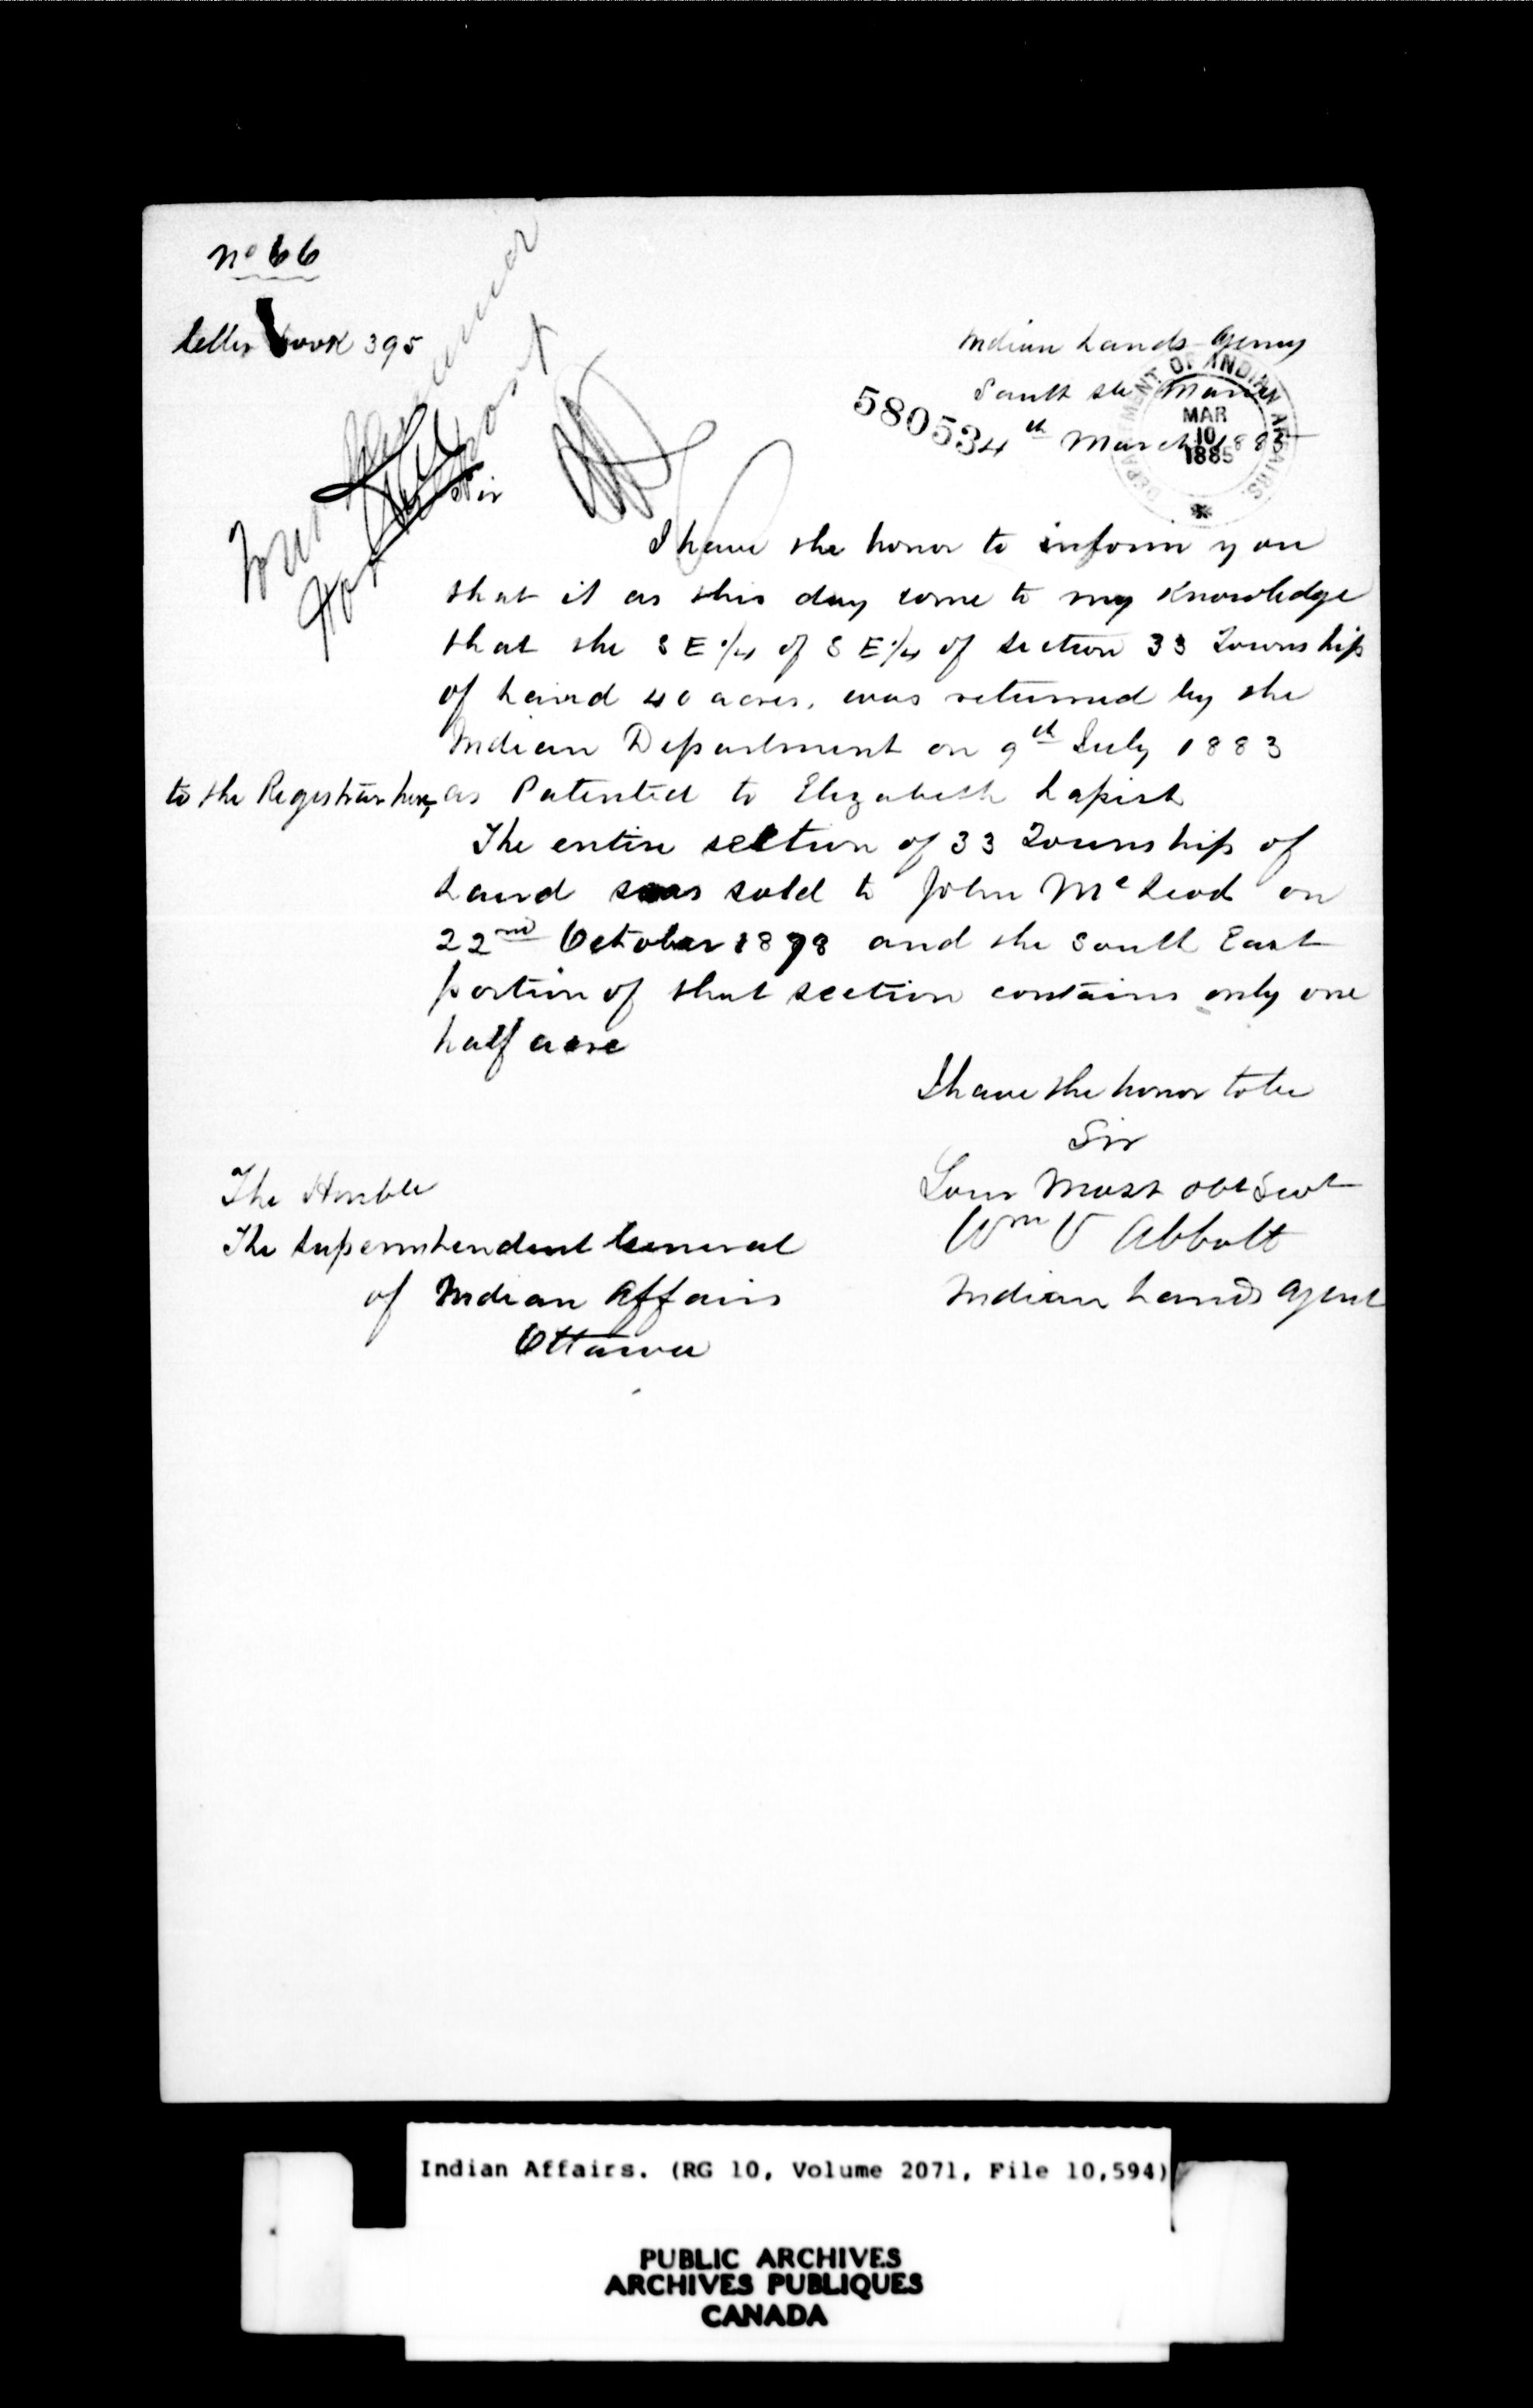 No 66
Letter book 395
Indian Lands Agency
Sault Ste Marie
58053
4th March 1885
DEPARTMENT OF INDIAN AFFAIRS.
MAR
10
1885
Sir
I have the honor to inform you
that it as this day come to my Knowledge
that the S E 1/4 of S E 1/4 of section 33 Township
of Laird 40 acres, was returned by the
Indian Department on 9th July 1883
to the Registrar here, as Patented to Elizabeth
The entire section of 33 Township of
Laird was sold to John McLeod on
22nd October 1878 and the South East
portion of that section contains only one
half acre
I have the honor to be
Sir
Your Most obt Servt
Wm V Abbott
Indian Lands Agent
The Honble
The Superintendent General
of Indian Affairs
Ottawa
Indian Affairs. (RG 10, Volume 2071, File 10,594)
PUBLIC ARCHIVES
ARCHIVES PUBLIQUES
CANADA